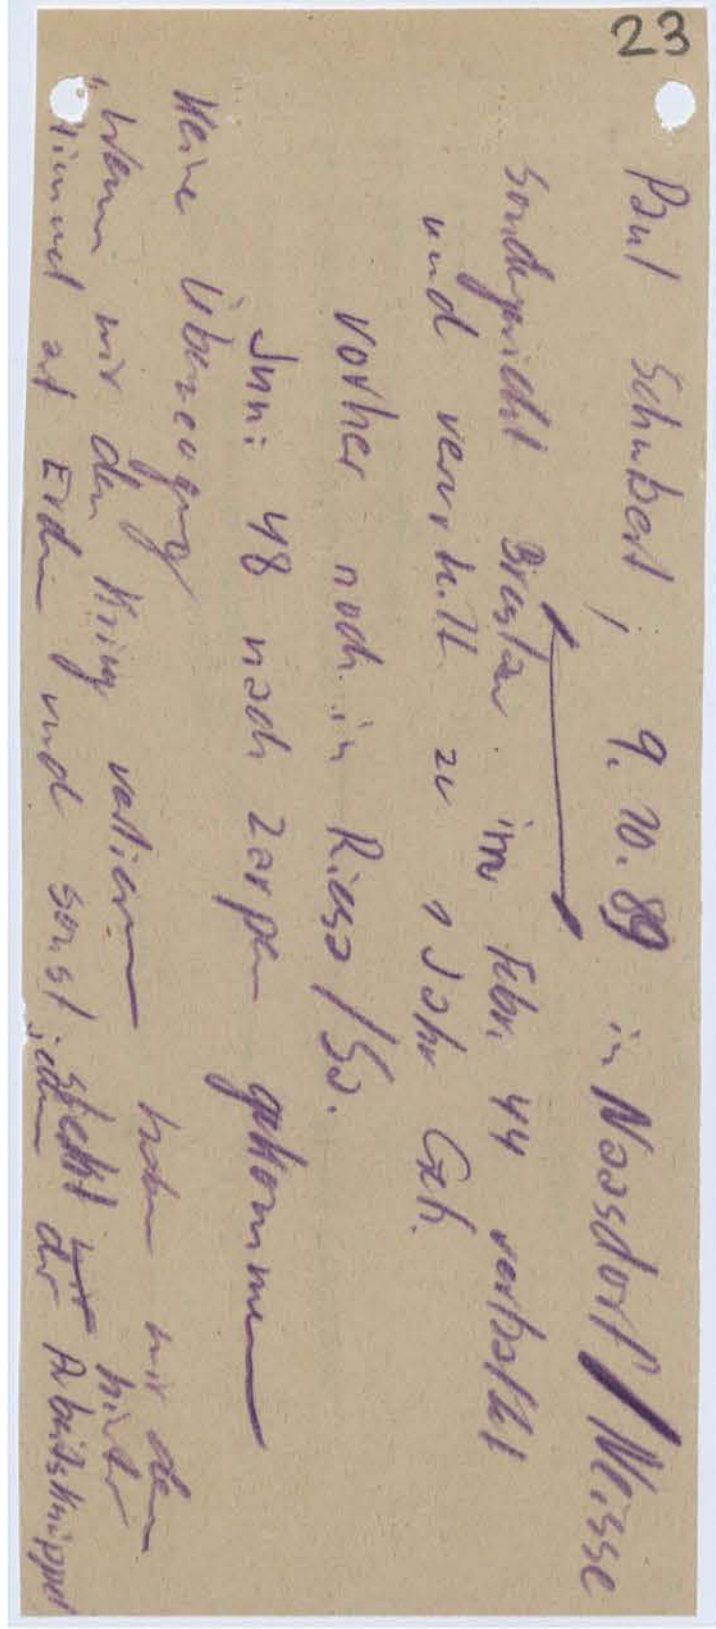 23
Paul Schubert, 9.10.89 in Naasdorf/Neisse
Sondergericht Breslau im Febr. 44 verhaftet
und verurteilt zu 1 Jahr Gef.
vorher noch in Riesa/Sa.
Juni 48 nach Zarpen gekommen
Meine Überzeugung
"Wenn wir den Krieg verlieren haben wir den
Himmel auf Erden und sonst steht hinter
jedem der Arbeitsknüppel